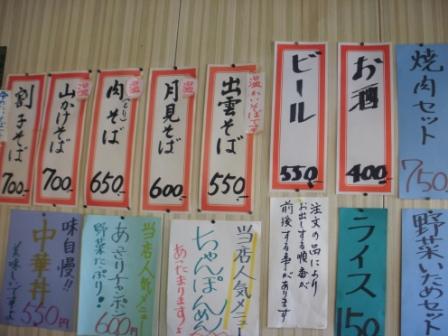 焼肉セット
750
お酒
400
ビール
550
出雲そば
温かいそばです
550
月見そば
温
600
肉そば
温
650
山かけそば
温
700
割子そば
700
野菜いため
ライス
150
注文の品により
お出しする順番が
前後する事があります
当店人気メニュー
ちゃんぽんめん
あったまりますよ
当店人気メニュー
あさりチャンポン
野菜たっぷり!
600円
味自慢!!
中華丼
美味しいですよ
550円